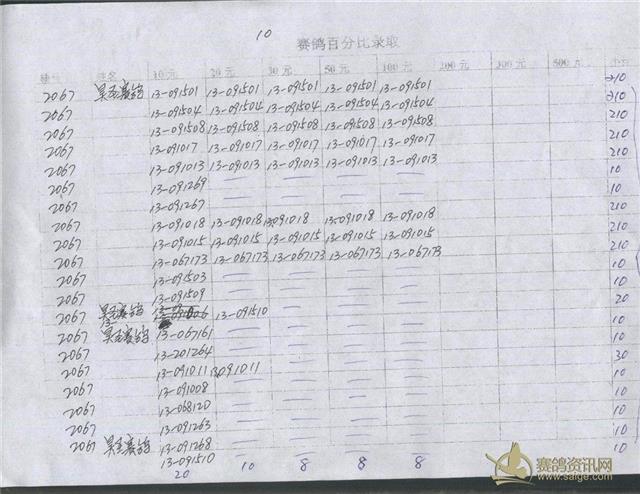 10
赛鸽百分比录取
10元 20元 30元 50元 100元 200元 300元 500元
2067 13-091501 13-091501 13-091501 13-091501 13-091501 210
2067 13-091504 13-091504 13-091504 13-091504 13-091504 210
2067 13-091508 13-091508 13-091508 13-091508 13-091508 210
2067 13-091017 13-091017 13-091017 13-091017 13-091017 210
2067 13-091013 13-091013 13-091013 13-091013 13-091013 210
2067 13-091269 — — — — 10
2067 13-091267 — — — — 10
2067 13-091018 13-091018 13-091018 13-091018 13-091018 210
2067 13-091015 13-091015 13-091015 13-091015 13-091015 210
2067 13-067173 13-067173 13-067173 13-067173 13-067173 210
2067 13-091503 — — — — 10
2067 13-091509 — — — — 10
2067 13-091510 — — — 20
2067 13-067161 — — — — 10
2067 13-201264 — — — — 10
2067 13-091011 13-091011 — — — 30
2067 13-091008 — — — — 10
2067 13-068120 — — — — 10
2067 13-091263 — — — — 10
2067 13-091268 — — — — 10
13-091510
20 10 8 8 8
赛鸽资讯网
www.saige.com